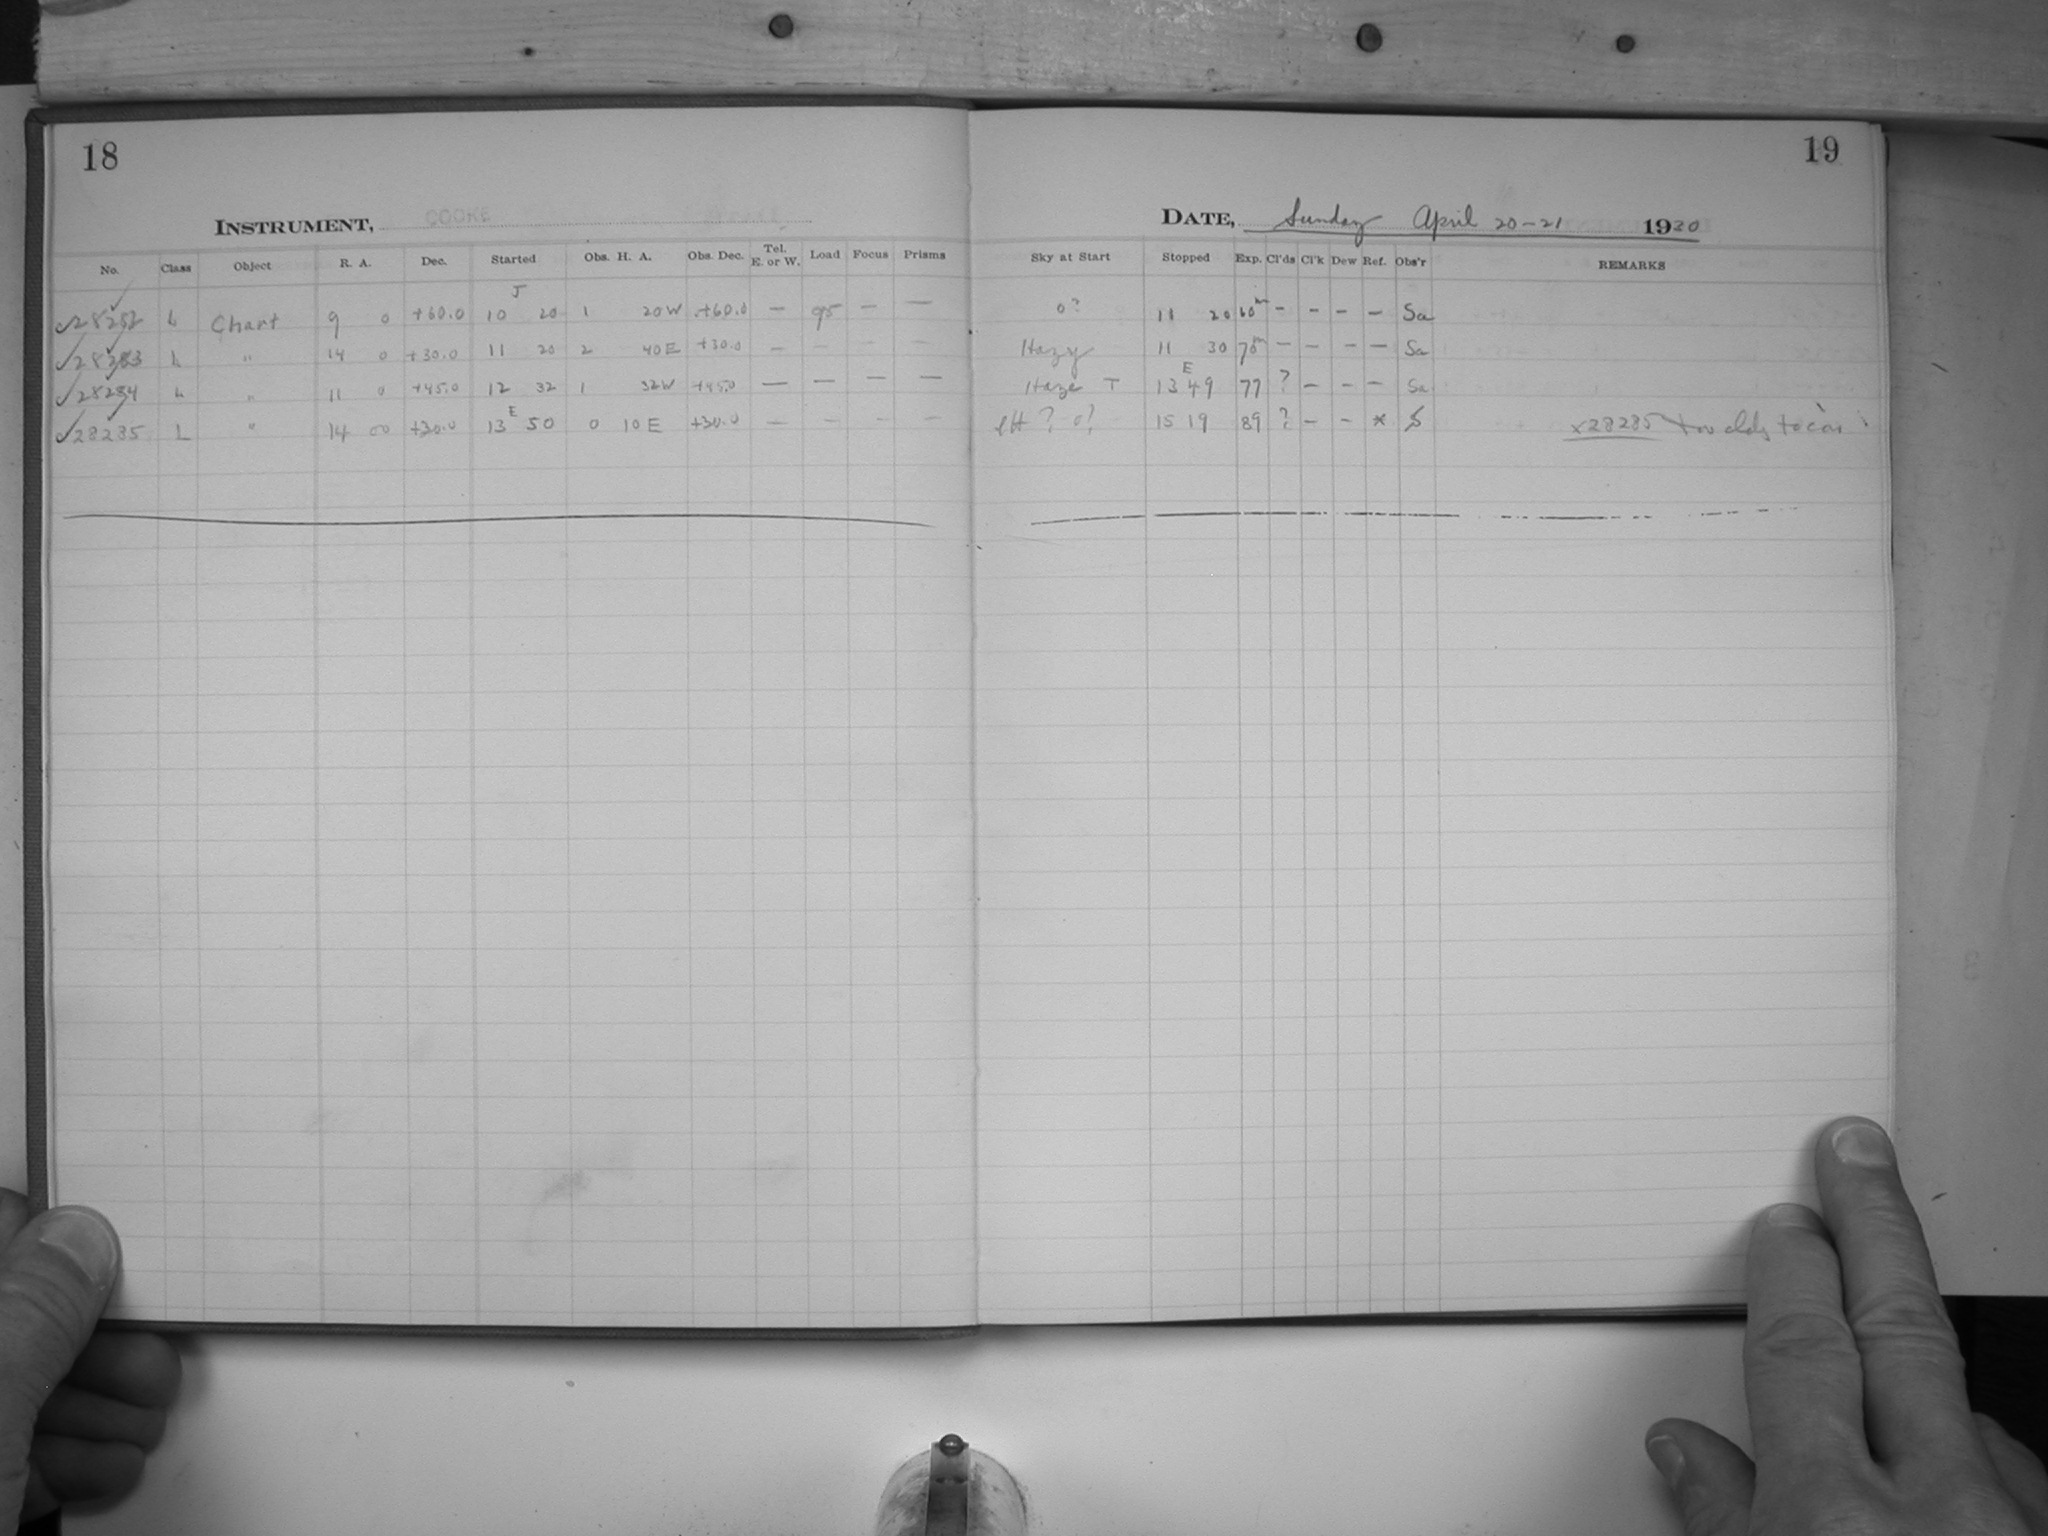 18
INSTRUMENT, COOKE
No. Class Object R. A. Dec. Started Obs. H. A. Obs. Dec. Tel. E. or W. Load Focus Prisms
28282 L Chart 9 0 +60.0 10 J 20 1 20W +60.0 — 95 — —
28283 L " 14 0 +30.0 11 20 2 40E +30.0 — — — —
28284 L " 11 0 +45.0 12 32 1 32W +45.0 — — — —
28285 L " 14 00 +30.0 13 E 50 0 10E +30.0 — — — —
19
DATE, Sunday April 20-21 1920
Sky at Start Stopped Exp. Cl'ds Cl'k Dew Ref. Obs'r REMARKS
0? 11 20 60m — — — — Sa
Hazy 11 30 70m — — — — Sa
Haze T 13 E 49 77 ? — — — Sa
? 0? 15 19 89 ? — — * S x28285